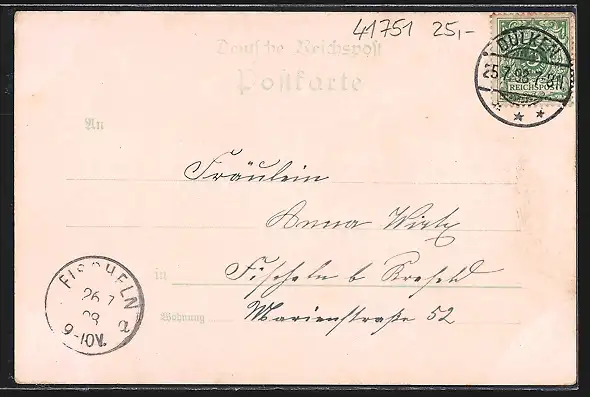 41751 25,-
Deutsche Reichspost
Postkarte
DÜLKEN
25.7.98.7-8N
REICHSPOST
An
Fräulein
Anna Wirtz
in Fischeln b Krefeld
Wohnung Marienstraße 52
FISCHELN
26 7
98
9-10V.